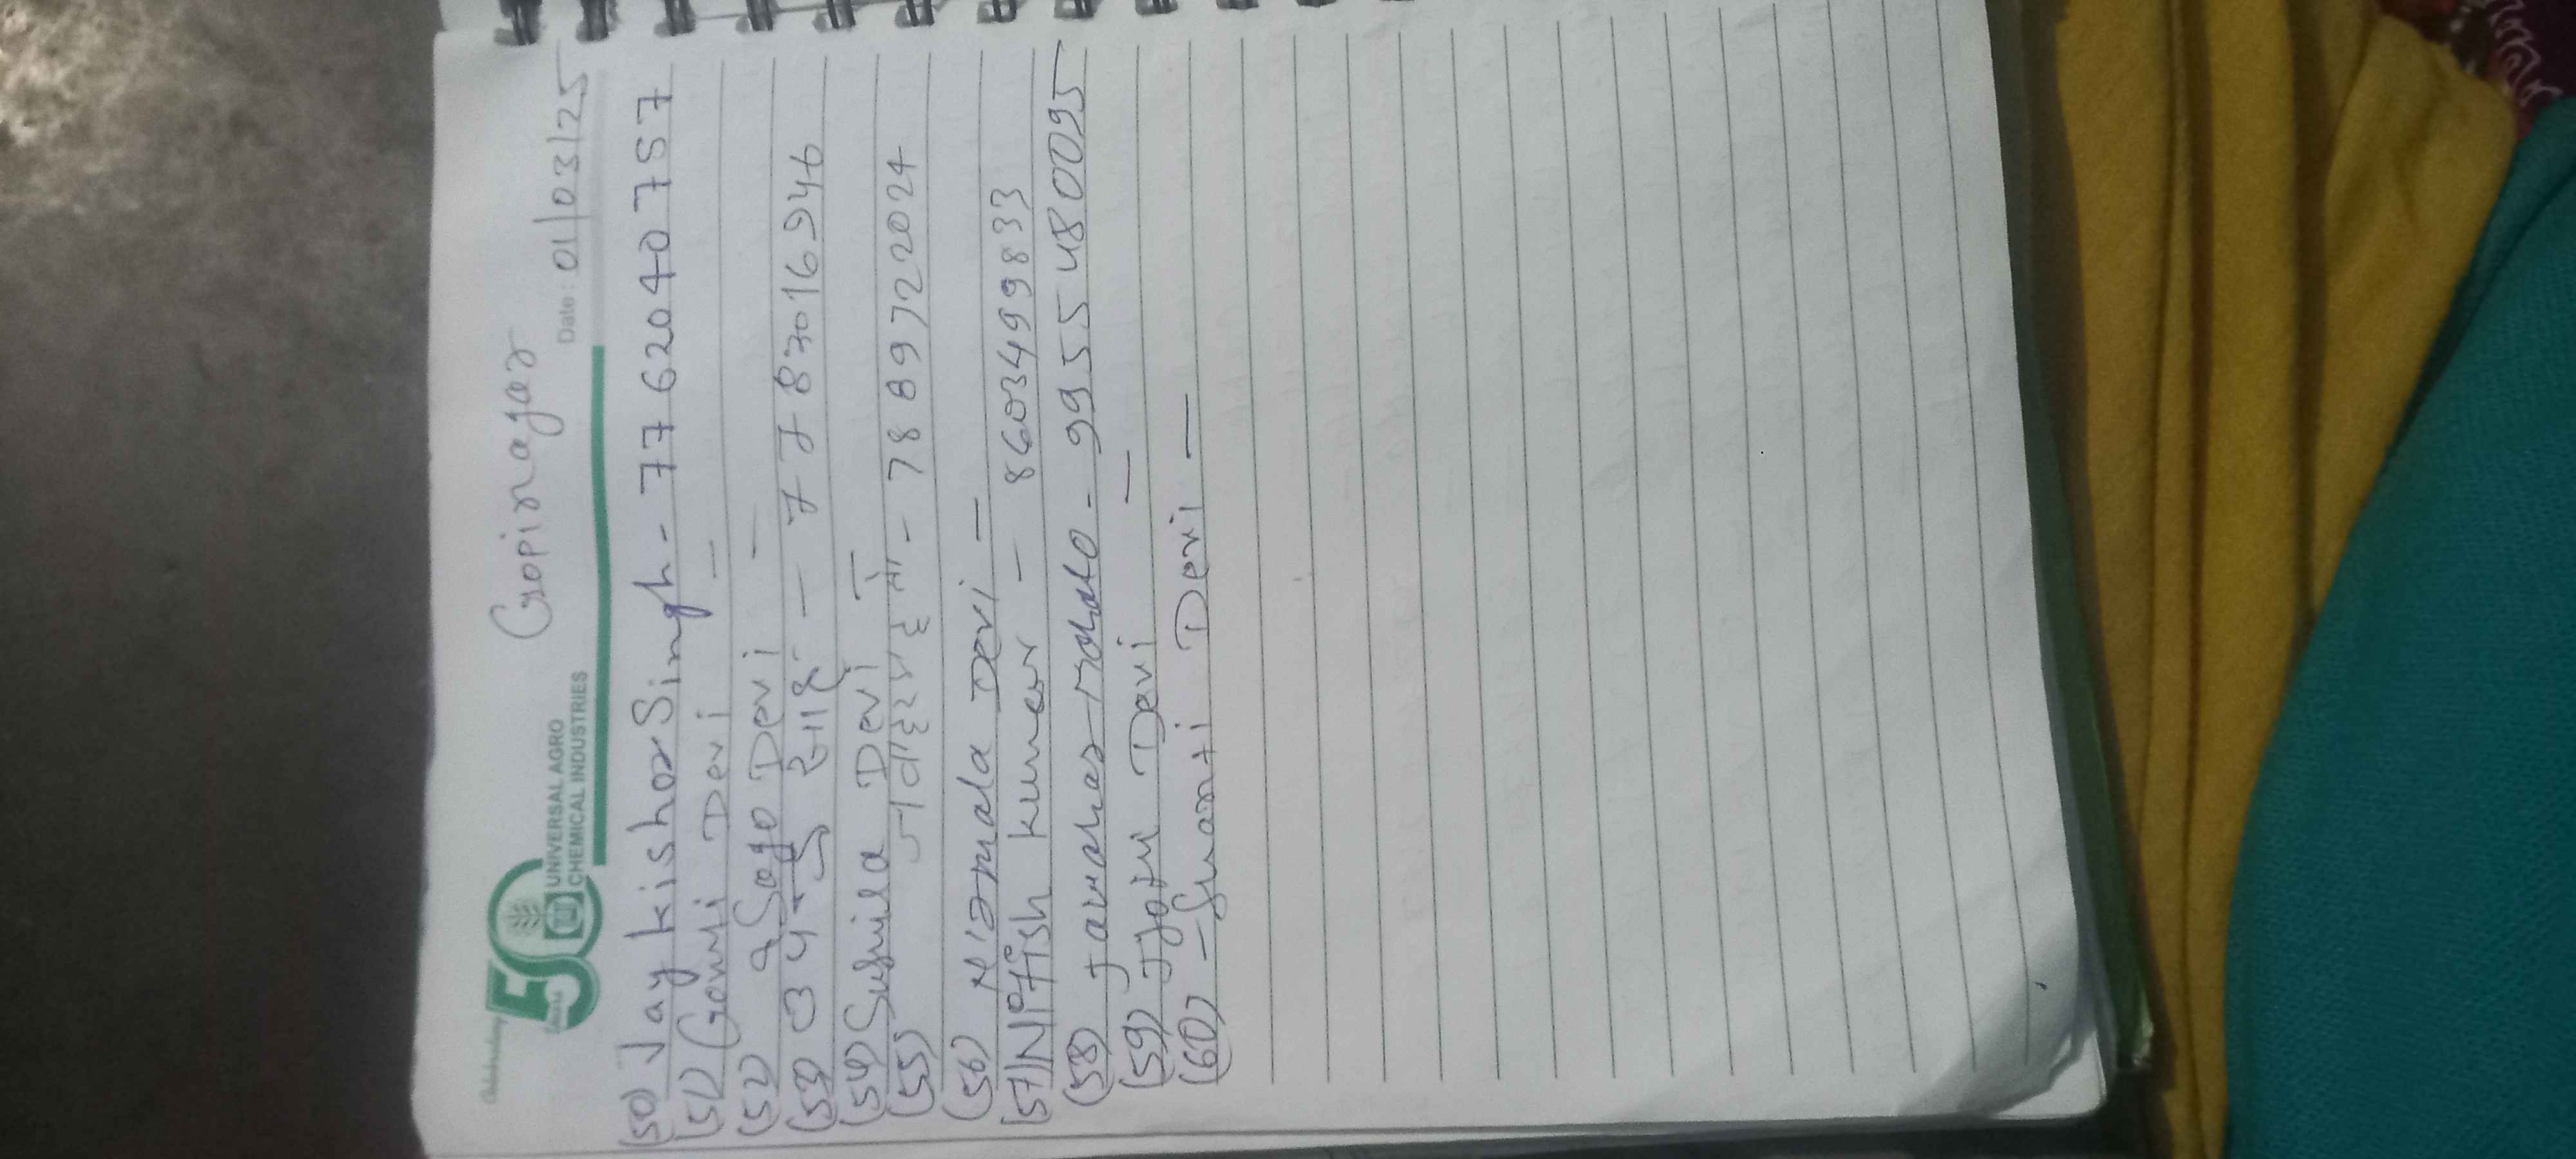 Gopinagar
Celebrating
50
UNIVERSAL AGRO
CHEMICAL INDUSTRIES
Date: 01/03/25
(50) Jay kishor Singh - 7762040757
(51) Gowri Devi —
(52) Devi —
(53) साहु —
(54) Sushila Devi —
(55) जवाहर महतो - 7889722024
(56) Niromala Devi —
(57) Nitish kumar — 8603499833
(58) Jawahar Mahato - 9955480095
(59) Devi —
(60) - Devi —